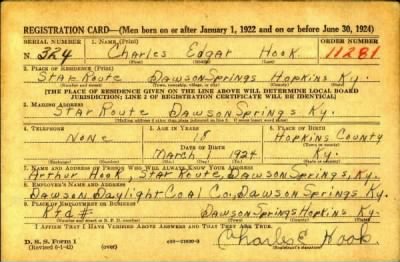 REGISTRATION CARD—(Men born on or after January 1, 1922 and on or before June 30, 1924)
SERIAL NUMBER 1. NAME (Print) ORDER NUMBER
N 324 Charles Edgar Hook 11281
(First) (Middle) (Last)
2. PLACE OF RESIDENCE (Print)
Star Route Dawson Springs Hopkins Ky.
(Number and street) (Town, township, village, or city) (County) (State)
[THE PLACE OF RESIDENCE GIVEN ON THE LINE ABOVE WILL DETERMINE LOCAL BOARD
JURISDICTION; LINE 2 OF REGISTRATION CERTIFICATE WILL BE IDENTICAL]
3. MAILING ADDRESS
Star Route Dawson Springs Ky.
[Mailing address if other than place indicated on line 2. If same insert word same]
4. TELEPHONE 5. AGE IN YEARS 6. PLACE OF BIRTH
None 18 Hopkins County
DATE OF BIRTH (Town or county)
March 1924 Ky.
(Exchange) (Number) (Mo.) (Day) (Yr.) (State or country)
7. NAME AND ADDRESS OF PERSON WHO WILL ALWAYS KNOW YOUR ADDRESS
Arthur Hook, Star Route, Dawson Springs, Ky.
8. EMPLOYER'S NAME AND ADDRESS
Dawson Daylight Coal Co., Dawson Springs Ky.
9. PLACE OF EMPLOYMENT OR BUSINESS
Dawson Springs Hopkins Ky.
(Number and street or R. F. D. number) (Town) (County) (State)
I AFFIRM THAT I HAVE VERIFIED ABOVE ANSWERS AND THAT THEY ARE TRUE.
D. S. S. Form 1
(Revised 6-1-42) (over) Charles E Hook
(Registrant's signature)